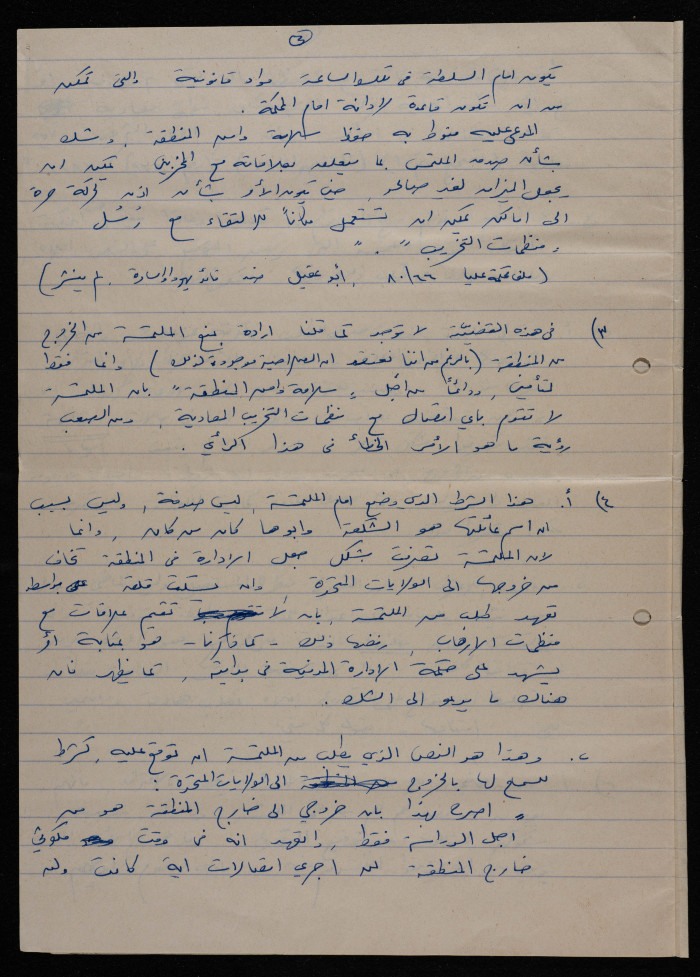 ٣
تكون امام السلطة في تلك الساعة مواد قانونية والتي تمكن
من ان تكون قاعدة لادانة امام المحكمة .
المدعى عليه منوط به حفظ سلامة وامن المنطقة ، وشك
بشأن صدق الملتمس بما يتعلق بعلاقاته مع المخربين يمكن ان
يجعل الميزان لغير صالحه ، حين يكون الأمر بشأن اذن لحركة حرة
الى اماكن يمكن ان تستعمل مكاناً للالتقاء مع رُسُل
منظمات التخريب " . "
( ملف محكمة عليا ٨٠/٦٦ ، أبو عقيل ضد قائد يهودا والسامرة . لم ينشر )
٣) في هذه القضية لا توجد كما قلنا ارادة بمنع الملتمسة من الخروج
من المنطقة ( بالرغم من اننا نعتقد ان الصلاحية موجودة لذلك ) وانما فقط
لتأمين ، ودائماً من أجل " سلامة وامن المنطقة " بان الملتمسة
لا تقوم باي اتصال مع منظمات التخريب المعادية ، ومن الصعب
رؤية ما هو الأمر الخطأ في هذا الرأي .
٤) أ. هذا الشرط الذي وضع امام الملتمسة ، ليس صدفة ، وليس بسبب
ان اسم عائلتها هو الشكعة وابوها كان من كان ، وانما
لان الملتمسة تصرفت بشكل جعل الادارة في المنطقة تخاف
من خروجها الى الولايات المتحدة وان بواسطة
تعهد طلب من الملتمسة ، بان لا تقيم علاقات مع
منظمات الارهاب ، رفضها ذلك - كما ذكرنا - هو بمثابة أمر
يشهد على حكمة الإدارة المدنية في بدايته ، كما يظهر فان
هناك ما يدعو الى الشك .
ب. وهذا هو النص الذي يطلب من الملتمسة ان توقع عليه ، كشرط
للسمح لها بالخروج الى الولايات المتحدة :
" اصرح بهذا بان خروجي الى خارج المنطقة هو من
اجل الدراسة فقط ، واتعهد انه في وقت مكوثي
خارج المنطقة لن اجري اتصالات اية كانت ولن